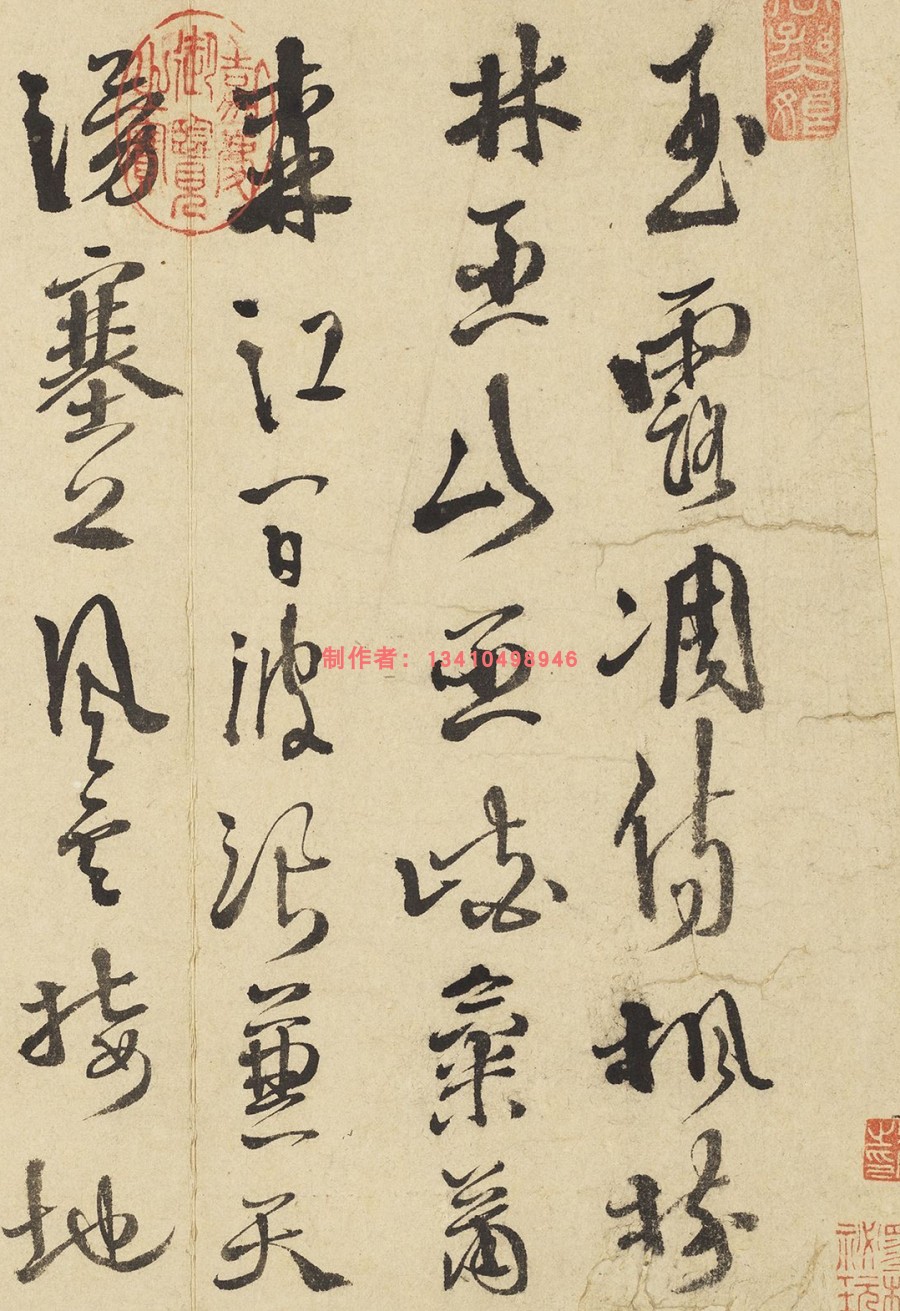 玉露凋傷楓樹
林巫山巫峽氣蕭
森江間波浪兼天
湧塞上風雲接地
嘉慶御覽之寶
制作者：13410498946